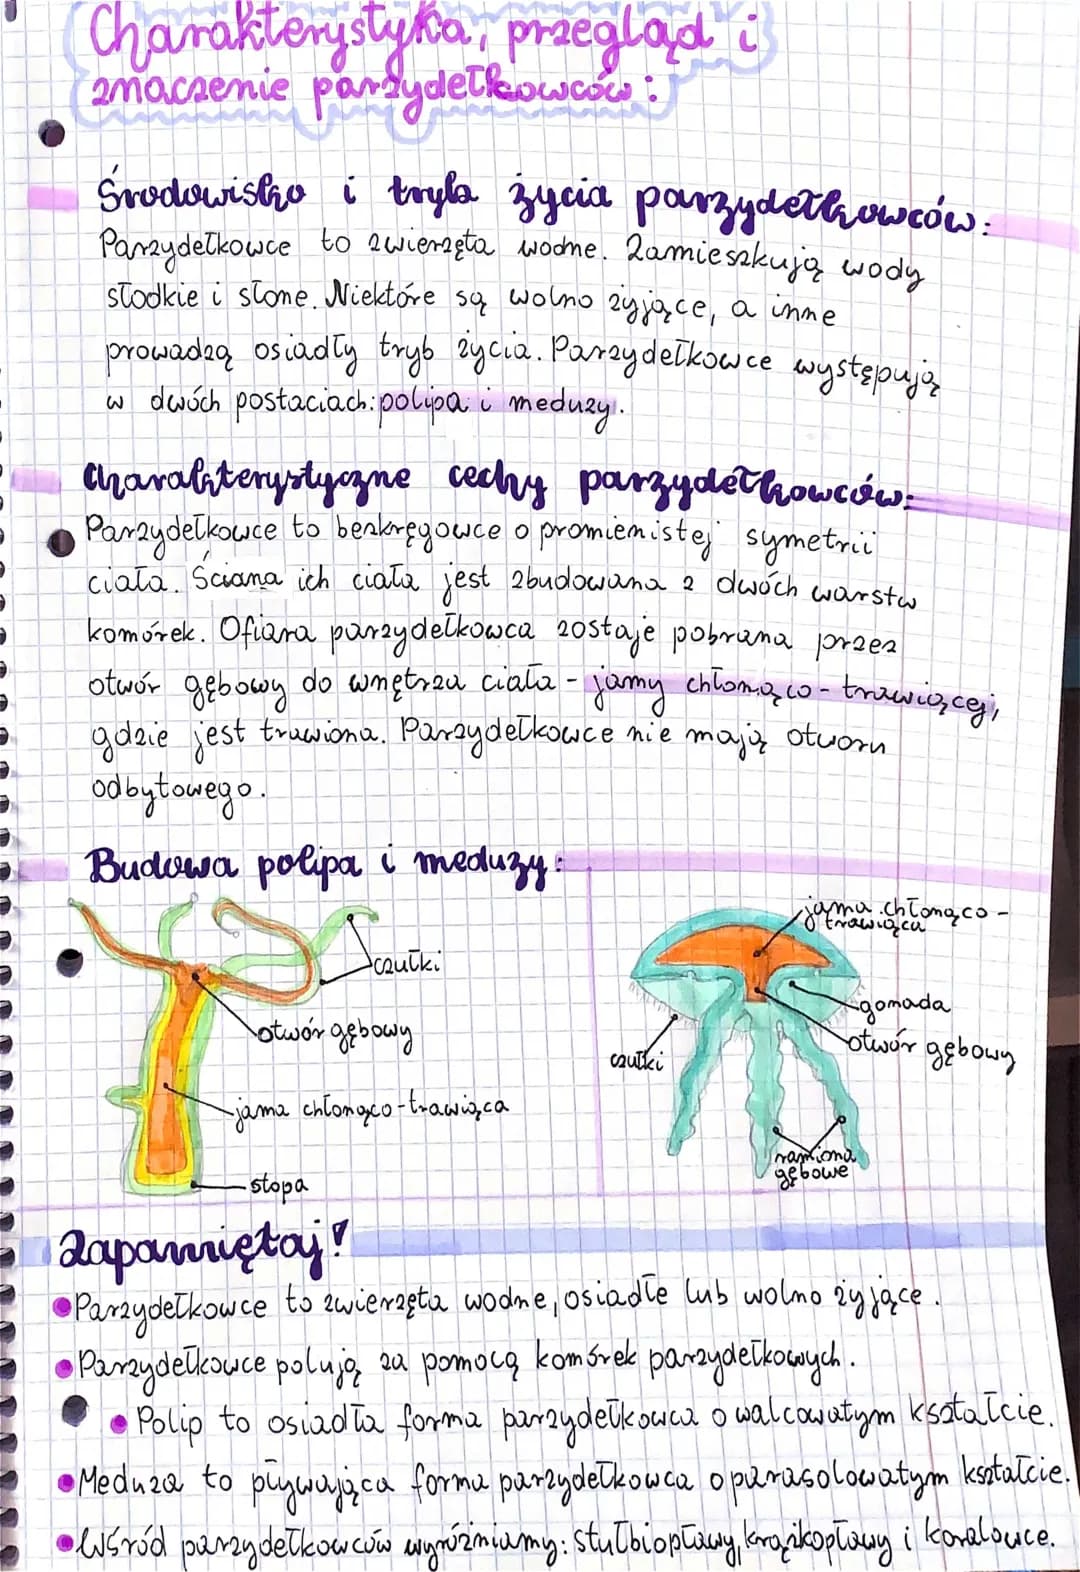 Charakterystyka, przegląd i
znaczenie parzydełkowców:
Środowisko i tryb życia parzydełkowców:
Parzydełkowce to zwierzęta wodne. Zamieszkują wody
słodkie i słone. Niektóre są wolno żyjące, a inne
prowadzą osiadły tryb życia. Parzydełkowce występują
w dwóch postaciach: polipa i meduzy.
Charakterystyczne cechy parzydełkowców:
Parzydełkowce to bezkręgowce o promienistej symetrii
ciała. Ściana ich ciała jest zbudowana z dwóch warstw
komórek. Ofiara parzydełkowca zostaje pobrana przez
otwór gębowy do wnętrza ciała - jamy chłonąco-trawiącej,
gdzie jest trawiona. Parzydełkowce nie mają otworu
odbytowego.
Budowa polipa i meduzy:
czułki
otwór gębowy
jama chłonąco-trawiąca
stopa
jama chłonąco-
trawiąca
gonada
otwór gębowy
czułki
ramiona
gębowe
Zapamiętaj!
Parzydełkowce to zwierzęta wodne, osiadłe lub wolno żyjące.
Parzydełkowce polują za pomocą komórek parzydełkowych.
Polip to osiadła forma parzydełkowca o walcowatym kształcie.
Meduza to pływająca forma parzydełkowca o parasolowatym kształcie.
Wśród parzydełkowców wyróżniamy: stułbiopławy, krążkopławy i koralowce.